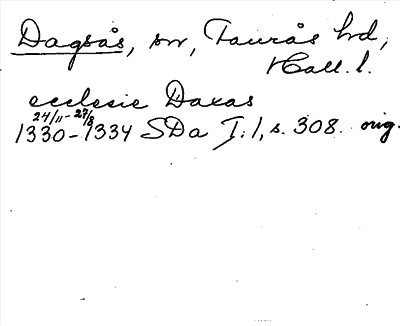 Dagsås, sn, Faurås hd,
Hall. l.
ecclesie Daxas
24/11-27/8
1330-1334 SDa I:1, s. 308. orig.